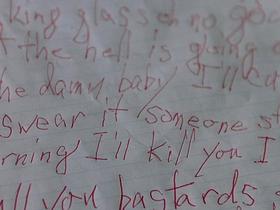 king glass oh no go
the hell is going
he damn baby I'll cu
swear it someone st
rning I'll kill you I
all you bastards